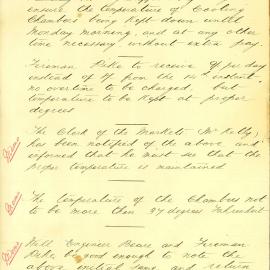 ensure the temperature of Cooling
Chamber being kept down until
Monday morning, and at any other
time necessary, without extra pay.
Fireman Pike to receive per day
instead of from the 14th instant,
no overtime to be charged, but
temperature to be kept at proper
degrees
The Clerk of the Markets (Mr Kelly)
has been notified of the above and
informed that he must see that the
proper temperature is maintained
The temperature of the Chambers not
to be more than 37 degrees Fahrenheit
Will Engineer and Fireman
Pike be good enough to note the
above initial same and return